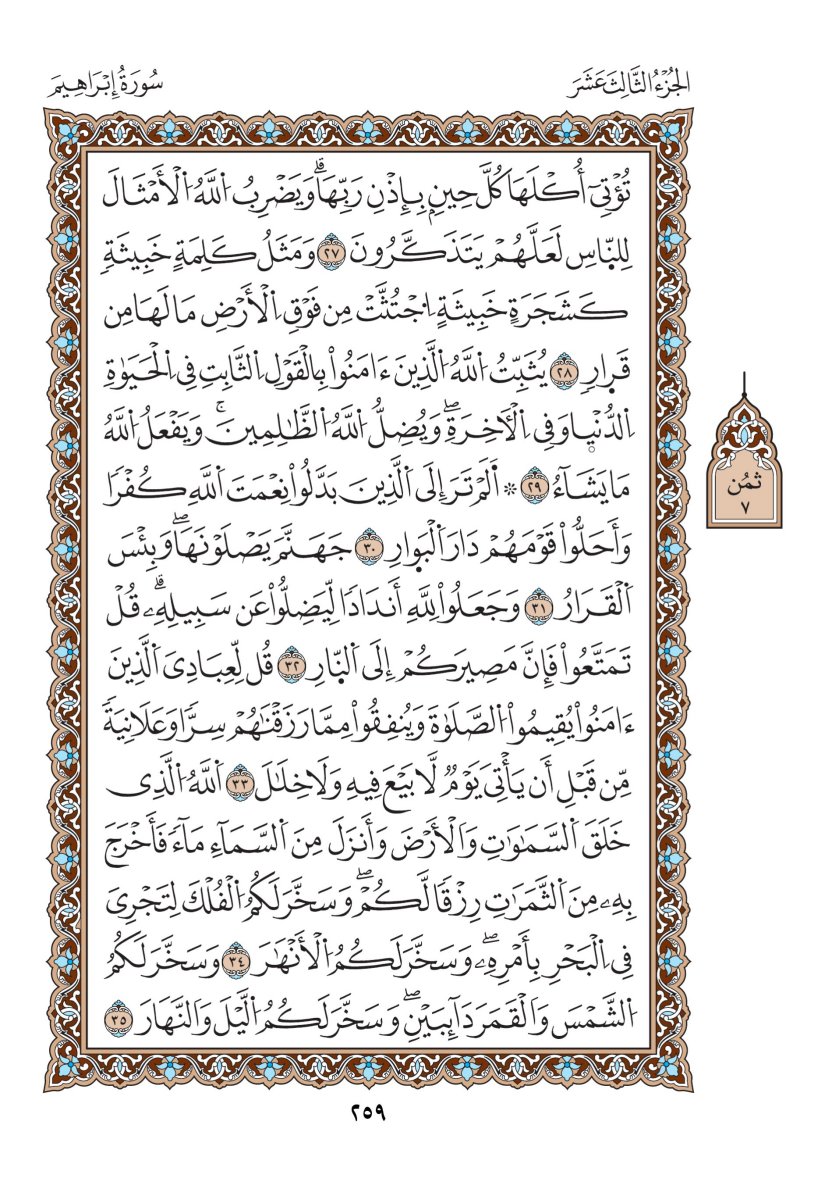 الجُزْءُ الثَّالِثَ عَشَرَ
سُورَةُ إِبْرَاهِيمَ
تُؤْتِىٓ أُكْلَهَا كُلَّ حِينٍۭ بِإِذْنِ رَبِّهَاۗ وَيَضْرِبُ اُ۬للَّهُ اُ۬لْأَمْثَالَ
لِلنَّاسِ لَعَلَّهُمْ يَتَذَكَّرُونَ ٢٧ وَمَثَلُ كَلِمَةٍ خَبِيثَةٖ
كَشَجَرَةٍ خَبِيثَةٍ اِ۟جْتُثَّتْ مِن فَوْقِ اِ۬لْأَرْضِ مَا لَهَا مِن
قَرِارٖ ٢٨ يُثَبِّتُ اُ۬للَّهُ اُ۬لَّذِينَ ءَامَنُواْ بِالْقَوْلِ اِ۬لثَّابِتِ فِى اِ۬لْحَيَوٰةِ
اِ۬لدُّنْيٜا وَفِى اِ۬لْأٓخِرَةِۖ وَيُضِلُّ اُ۬للَّهُ اُ۬لظَّٰلِمِينَۚ وَيَفْعَلُ اُ۬للَّهُ
مَا يَشَآءُ ٢٩ ۞ أَلَمْ تَرَ إِلَى اَ۬لَّذِينَ بَدَّلُواْ نِعْمَتَ اَ۬للَّهِ كُفْرٗا
وَأَحَلُّواْ قَوْمَهُمْ دَارَ اَ۬لْبَوِارِ ٣٠ جَهَنَّمَ يَصْلَوْنَهَاۖ وَبِئْسَ
اَ۬لْقَرَارُ ٣١ وَجَعَلُواْ لِلَّهِ أَندَادٗا لِّيَضِلُّواْ عَن سَبِيلِهِۦۗ قُلْ
تَمَتَّعُواْ فَإِنَّ مَصِيرَكُمْ إِلَى اَ۬لنّ۪ارِ ٣٢ قُل لِّعِبَادِىَ اَ۬لَّذِينَ
ءَامَنُواْ يُقِيمُواْ اُ۬لصَّلَوٰةَ وَيُنفِقُواْ مِمَّا رَزَقْنَٰهُمْ سِرّٗا وَعَلَانِيَةٗ
مِّن قَبْلِ أَن يَأْتِىَ يَوْمٌ لَّا بَيْعَ فِيهِ وَلَا خِلَٰلَ ٣٣ اَ۬للَّهُ اُ۬لَّذِى
خَلَقَ اَ۬لسَّمَٰوَٰتِ وَالْأَرْضَ وَأَنزَلَ مِنَ اَ۬لسَّمَآءِ مَآءٗ فَأَخْرَجَ
بِهِۦ مِنَ اَ۬لثَّمَرَٰتِ رِزْقٗا لَّكُمْۖ وَسَخَّرَ لَكُمُ اُ۬لْفُلْكَ لِتَجْرِىَ
فِى اِ۬لْبَحْرِ بِأَمْرِهِۦۖ وَسَخَّرَ لَكُمُ اُ۬لْأَنْهَٰرَ ٣٤ وَسَخَّرَ لَكُمُ
اُ۬لشَّمْسَ وَالْقَمَرَ دَآئِبَيْنِۖ وَسَخَّرَ لَكُمُ اُ۬لَّيْلَ وَالنَّهَارَ ٣٥
ثُمُن
٧
٢٥٩